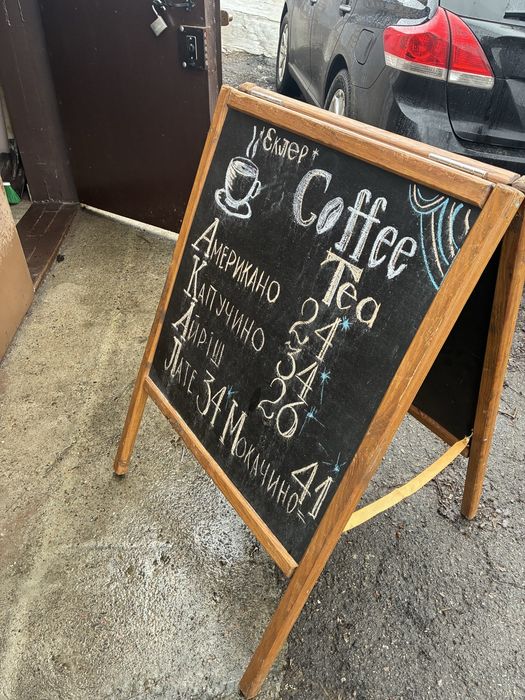 *Еклер*
Coffee
Tea
Американо 24
Капучино 34
Айріш 26
Лате 34 Мокачино 41